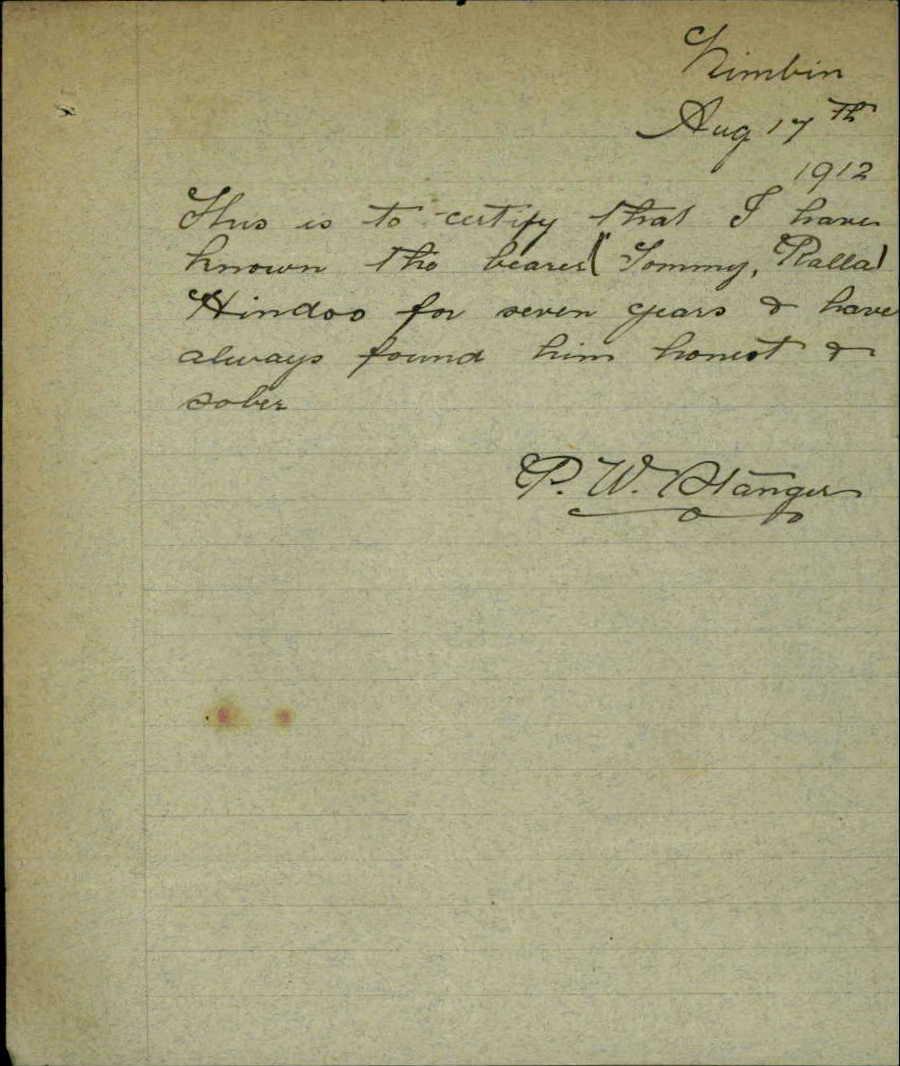 Nimbin
Aug 17th
1912
This is to certify that I have
known the bearer (Tommy, Ralla)
Hindoo for seven years & have
always found him honest &
sober
P. W. Stanger